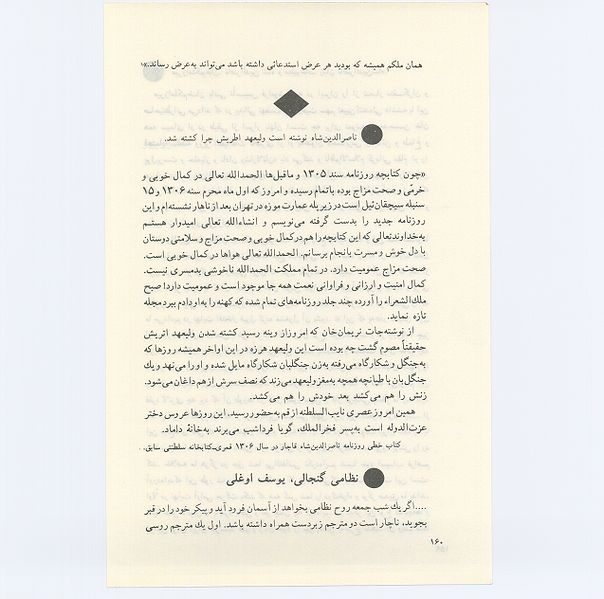 همان ملکم همیشه که بودید هر عرض استدعائی داشته باشد می‌تواند به‌عرض رساند.»
ناصرالدین‌شاه نوشته است ولیعهد اطریش چرا کشته شد.
«چون کتابچه روزنامه سند ۱۳۰۵ و ماقبل‌ها الحمدالله تعالی در کمال خوبی و
خرمّی و صحت مزاج بوده باتمام رسیده و امروز که اول ماه محرم سنه ۱۳۰۶ و ۱۵
سنبله سیچقان‌ئیل است در زیر پله عمارت موزه در تهران بعد از ناهار نشسته‌ام و این
روزنامه جدید را بدست گرفته می‌نویسم و انشاءالله تعالی امیدوار هستم
به‌خداوندتعالی که این کتابچه را هم در کمال خوبی و صحت مزاج و سلامتی دوستان
با دل خوش و مسرت بانجام برسانم. الحمدالله تعالی هواها در کمال خوبی است.
صحت مزاج عمومیت دارد. در تمام مملکت الحمدالله ناخوشی بدمسری نیست.
کمال امنیت و ارزانی و فراوانی نعمت همه جا موجود است و عمومیت دارد؛ صبح
ملك‌الشعراء را آورده چند جلد روزنامه‌های تمام شده که کهنه را به‌او دادم ببرد مجلد
تازه نماید.
از نوشته‌جات نریمان‌خان که امروز از وینه رسید کشته شدن ولیعهد اتریش
حقیقتاً معلوم گشت چه بوده است این ولیعهد هرزه در این اواخر همیشه روزها که
به‌جنگل و شکارگاه می‌رفته به‌زن جنگلبان شکارگاه مایل شده و او را می‌نهد و یك
جنگل‌بان با طپانچه همچه به‌مغز ولیعهد می‌زند که نصف سرش از هم داغان می‌شود.
زنش را هم می‌کشد بعد خودش را هم می‌کشد.
همین امروز عصری نایب‌السلطنه از قم به‌حضور رسید. این روزها عروس دختر
عزت‌الدوله است به‌پسر فخرالملك، گویا فرداشب می‌برند به‌خانهٔ داماد.
کتاب خطی روزنامه ناصرالدین‌شاه قاجار در سال ۱۳۰۶ قمری-کتابخانه سلطنتی سابق.
نظامی گنجالی، یوسف اوغلی
....اگر یك شب جمعه روح نظامی بخواهد از آسمان فرود آید و پیکر خود را در قبر
بجوید، ناچار است دو مترجم زبردست همراه داشته باشد. اول یك مترجم روسی
۱۶۰